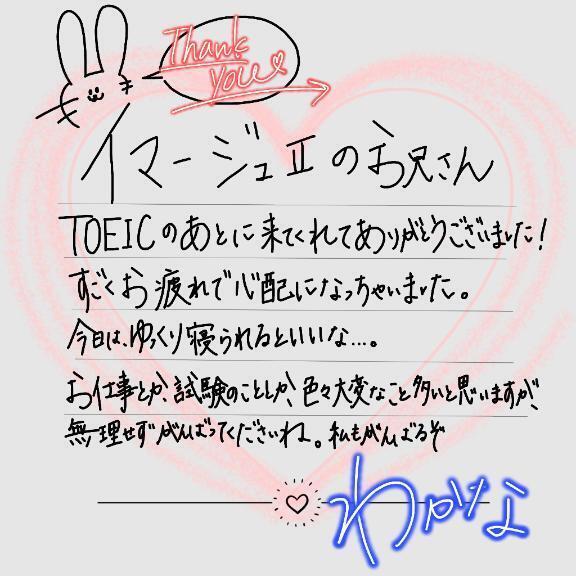 Thank
you
イマージュⅡのお兄さん
TOEICのあとに来てくれてありがとうございました!
すごくお疲れで心配になっちゃいました。
今日は、ゆっくり寝られるといいな…。
お仕事とか、試験のこととか、色々大変なこと多いと思いますが、
無理せずがんばってくださいね。私もがんばるぞ
わかな